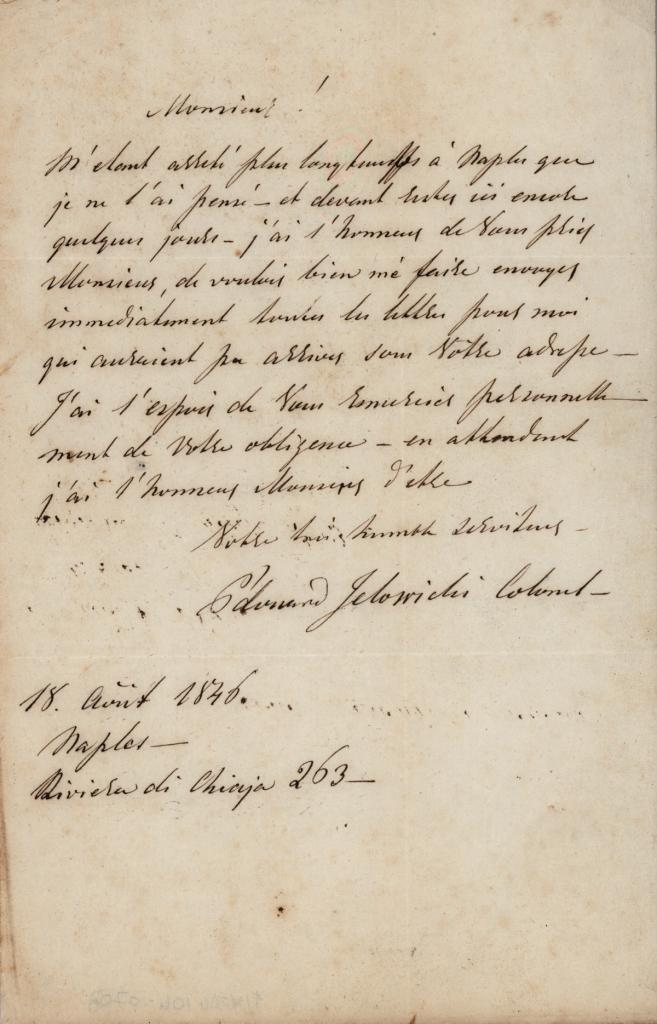 Monsieur !
M'etant arreté plus longtemps à Naples que
je ne l'ai pensé – et devant rester ici encore
quelques jours – j'ai l'honneur de Vous prier
Monsieur, de vouloir bien me faire envoyer
immediatement toutes les lettres pour moi
qui auraient pu arriver sous Votre adresse –
J'ai l'espoir de Vous remercier personnelle
ment de Votre obligence – en attendent
j'ai l'honneur Monsieur d'etre
Votre trés humble serviteur –
Édouard Jelowicki Colonel –
18. Août 1846.
Naples –
Riviera di Chiaja 263 –